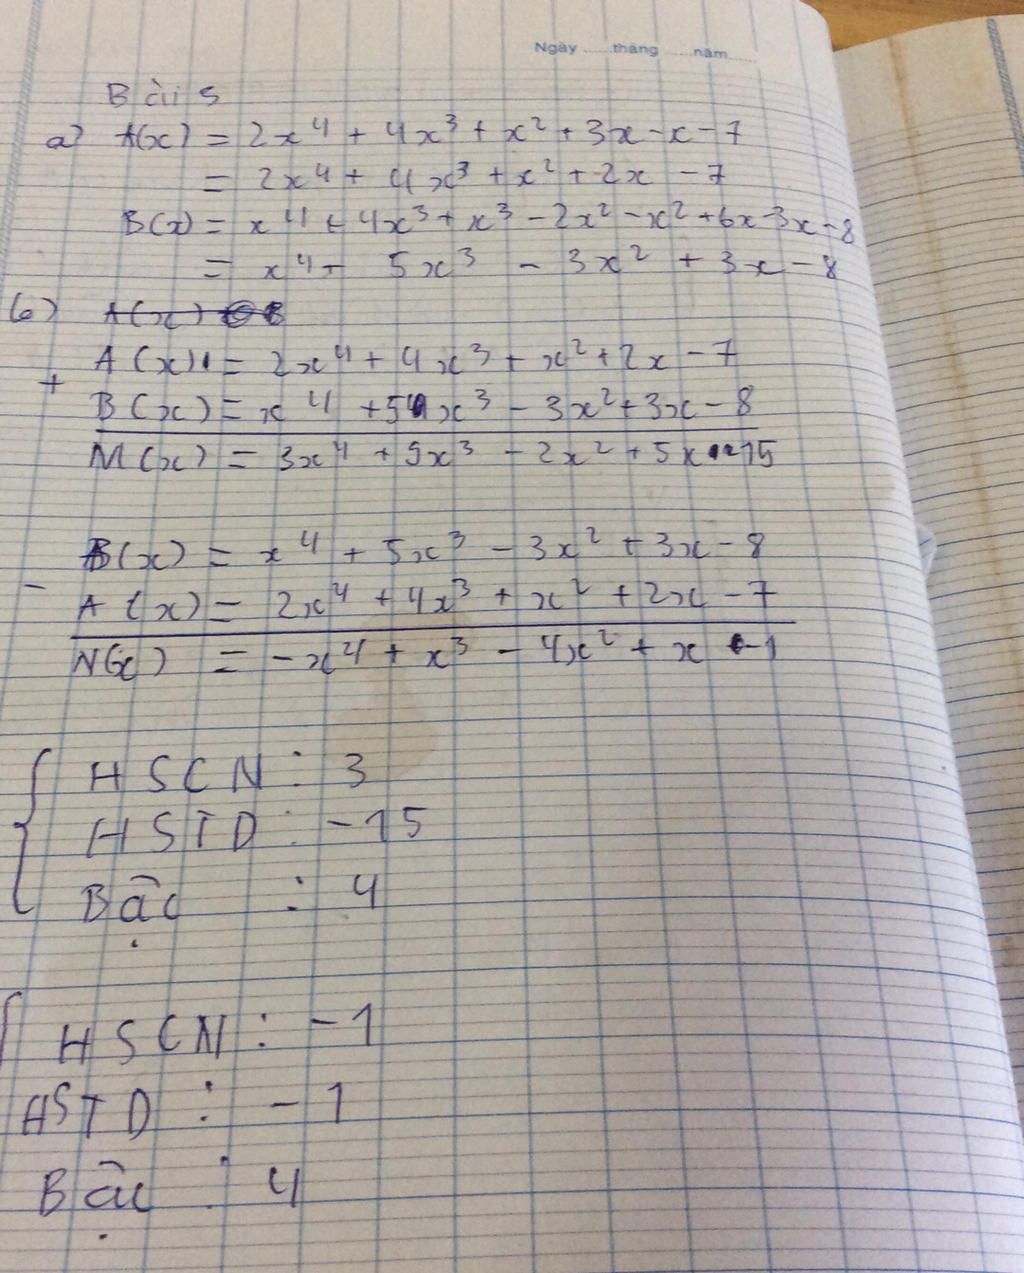 Ngày ......tháng ......năm......
Bài 5
a) A(x) = 2x⁴ + 4x³ + x² + 3x - x - 7
= 2x⁴ + 4x³ + x² + 2x - 7
B(x) = x⁴ + 4x³ + x³ - 2x² - x² + 6x - 3x - 8
= x⁴ + 5x³ - 3x² + 3x - 8
b) A(x)
A(x) = 2x⁴ + 4x³ + x² + 2x - 7
+
B(x) = x⁴ + 5x³ - 3x² + 3x - 8
M(x) = 3x⁴ + 9x³ - 2x² + 5x - 15
B(x) = x⁴ + 5x³ - 3x² + 3x - 8
-
A(x) = 2x⁴ + 4x³ + x² + 2x - 7
N(x) = -x⁴ + x³ - 4x² + x - 1
HSCN : 3
HSTD : -15
Bậc : 4
HSCN : -1
HSTD : -1
Bậc : 4